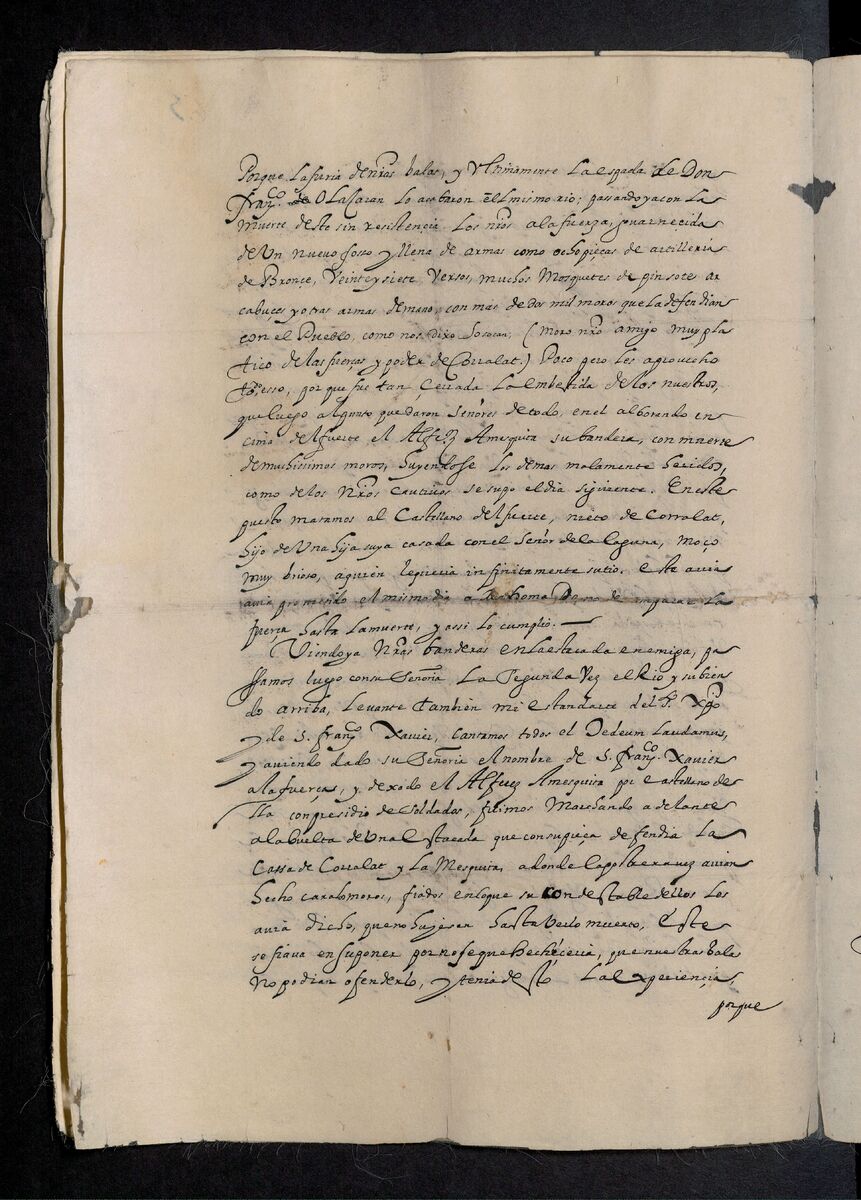 Porque la furia de nr̃as balas, y Vltimamente la espada de Don
Fran.co de Olaçaran lo acabaron en el mismo rio; passando ya con la
muerte deste sin resistencia los nr̃os a la fuerza, guarnecida
de Un nuevo fosso y llena de armas como ocho pieças de artilleria
de Bronçe, Veinte y siete Versos, muchos Mosquetes de pinsote ar
cabuçes y otras armas de mano, con más de dos mil moros que la defendian
con el Pueblo, como nos dixo Sosocan, (Moro nr̃o amigo muy pla
tico de las fuerças y poder de Corralat.) Poco pero les aprovecho
esso, por que fue tan çerrada la embestida de los nuestros,
que luego al punto quedaron Señores de todo, en el alborando en
cima del fuerte el Alferz Amesquita su bandera, con muerte
de muchissimos moros, huyendose los demas malamente heridos,
como de los nr̃os Cautivos se supo el dia siguiente. En este
puesto matamos al Castellano del fuerte, nieto de Corralat,
hijo de Una hija suya casada con el Señor de la laguna, moço
muy brioso, a quien le queria infinitamente su tio. este avia
avia prometido el mismo dia a Mahoma de no desamparar la
fuerça hasta la muerte, y assi lo cumplió.—
Viendo ya nr̃as banderas en la estacada enemiga, pa
ssamos luego con su Señoria la Segunda Vez el Rio y subien
do arriba, levante también mi estandarte del S.to Xp̃o
y de S. Fran.co Xavier, Cantamos todos el Tedeum laudamus,
y aviendo dado su Señoria el nombre de S. Fran.co Xavier
a la fuerças, y dexado el Alferez Amesquita por Castellano de
lla con presidio de Soldados, fuimos Marchando adelante
a la buelta de Una Estacada que con su pieça defendia la
Cassa de Corralat y la Mesquita, a donde la postrera vez avian
hecho cara los moros, fiados en lo que su Condestable dellos los
avia dicho, que no huyesen hasta verlo muerto, Este
se fiava en suponer por no se que hechiçeria, que nuestras balas
No podian ofenderlo, y tenia desto la experiençia,
porque